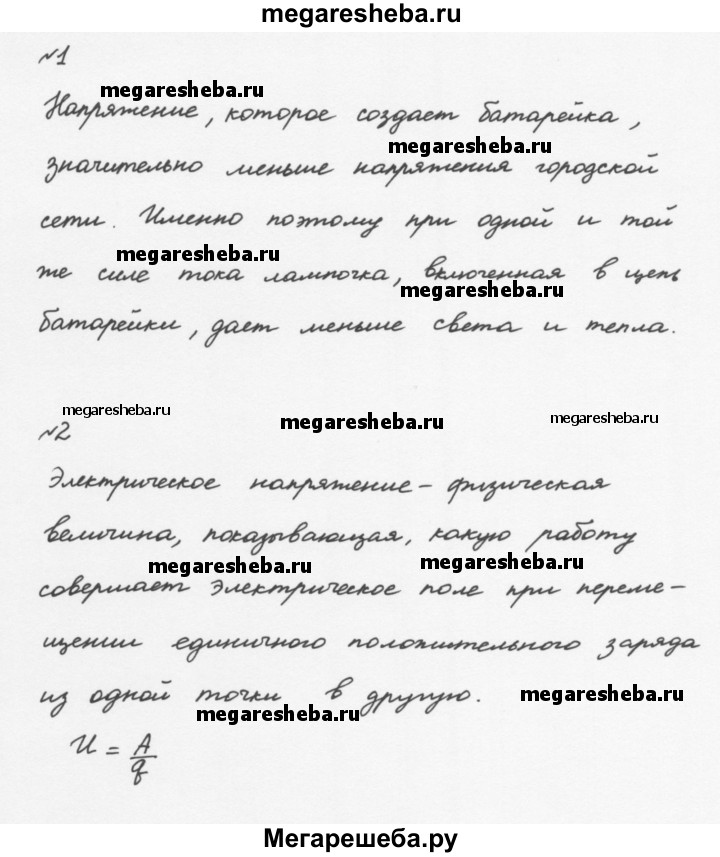 megaresheba.ru
№1
megaresheba.ru
Напряжение, которое создает батарейка,
megaresheba.ru
значительно меньше напряжения городской
сети. Именно поэтому при одной и той
megaresheba.ru
же силе тока лампочка, включенная в цепь
megaresheba.ru
батарейки, дает меньше света и тепла.
megaresheba.ru megaresheba.ru megaresheba.ru
№2
Электрическое напряжение – физическая
величина, показывающая, какую работу
megaresheba.ru megaresheba.ru
совершает электрическое поле при переме-
щении единичного положительного заряда
из одной точки в другую. megaresheba.ru
megaresheba.ru
U = A/q
Мегарешеба.ру